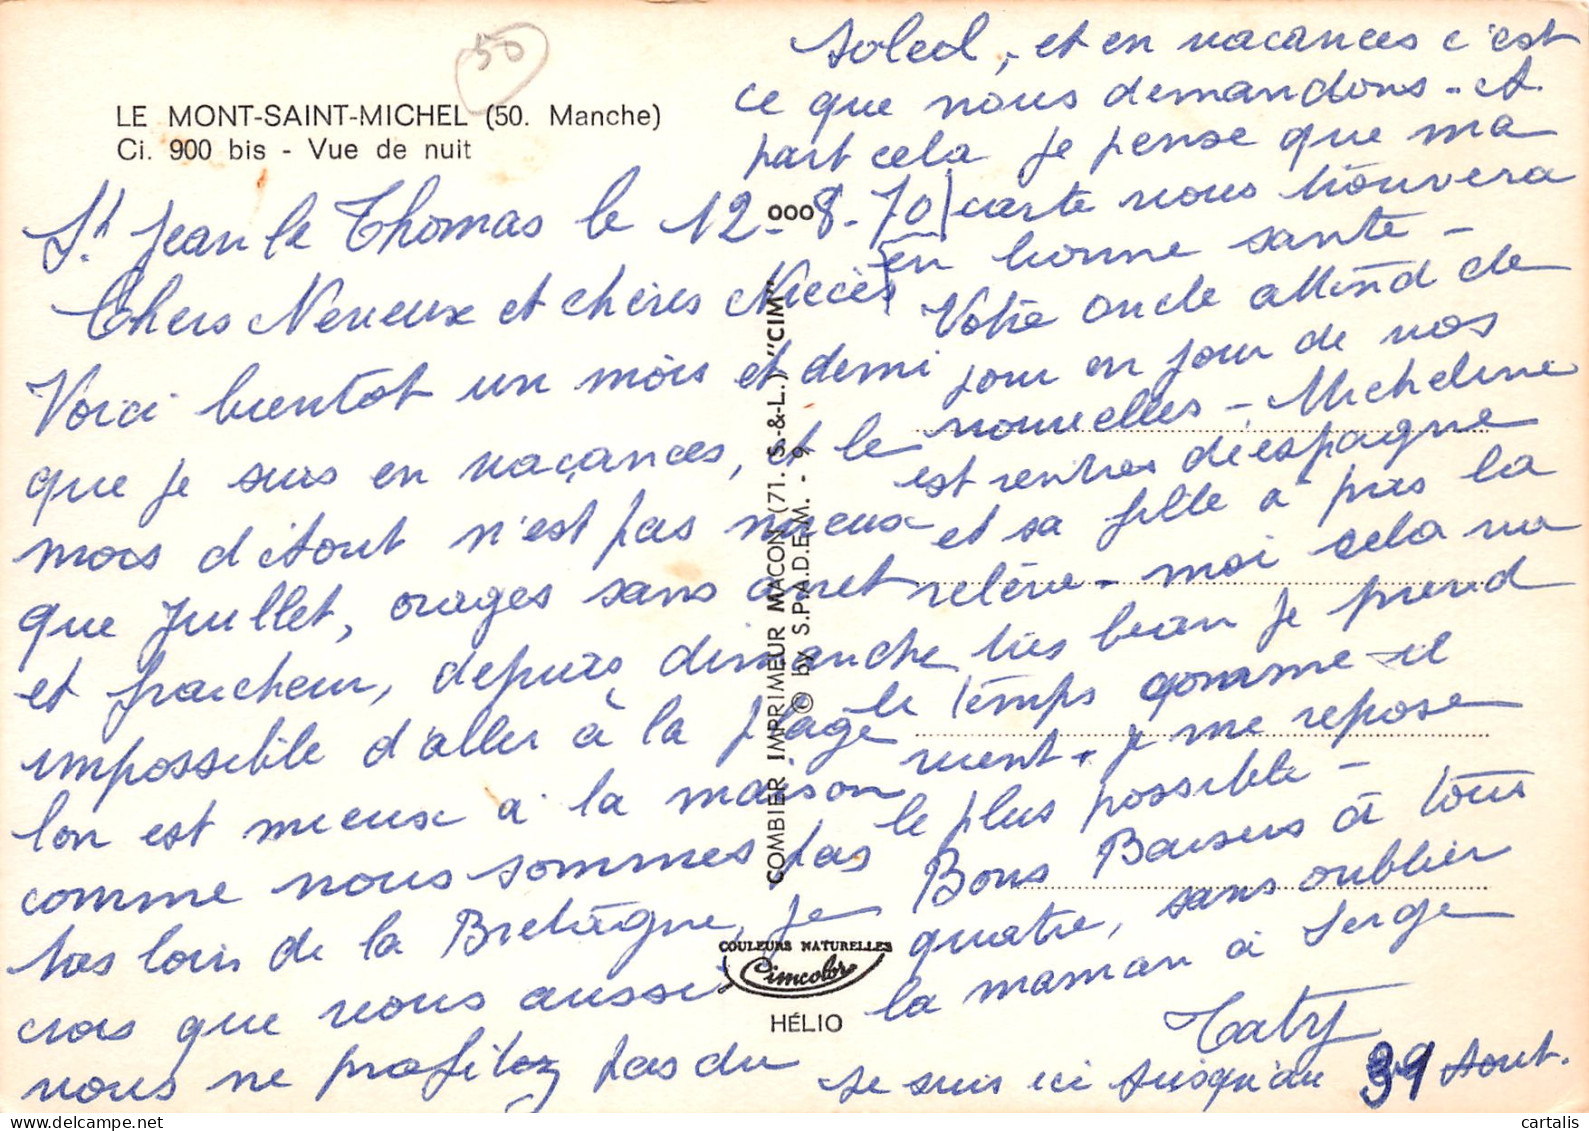 50
LE MONT-SAINT-MICHEL (50. Manche)
Ci. 900 bis - Vue de nuit
St Jean le Thomas le 12-8-70
Chers Neveux et chères Nieces
Voici bientot un mois et demi
que je suis en vacances, et le
mois d'Aout n'est pas mieux
que Juillet, orages sans arret
et fraicheur, depuis dimanche
impossible d'aller à la plage
lon est mieux a la maison
comme nous sommes pas
tas loin de la Bretâgne, je
crois que vous aussi
vous ne profitez pas du
soleil, et en vacances c'est
ce que nous demandons - A
part cela je pense que ma
carte vous trouvera
en bonne santé -
Votre oncle attend de
jour en jour de vos
nouvelles - Micheline
est rentrée d'espagne
et sa fille a pris la
relève - moi cela va
très bien je prend
le temps comme il
vient - je me repose
le plus possible -
Bons Baisers à tous
quatre, sans oublier
la maman à Serge
Taty
Je suis ici jusqu'au 31 Aout.
000
COMBIER IMPRIMEUR MACON (71. S.-&-L.) "CIM"
© by S.P.A.D.E.M. - 9
COULEURS NATURELLES
Cimcolor
HÉLIO
cartalis